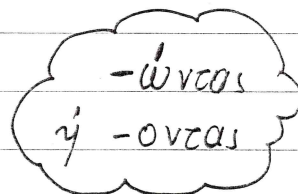 -ώντας
ή -οντας